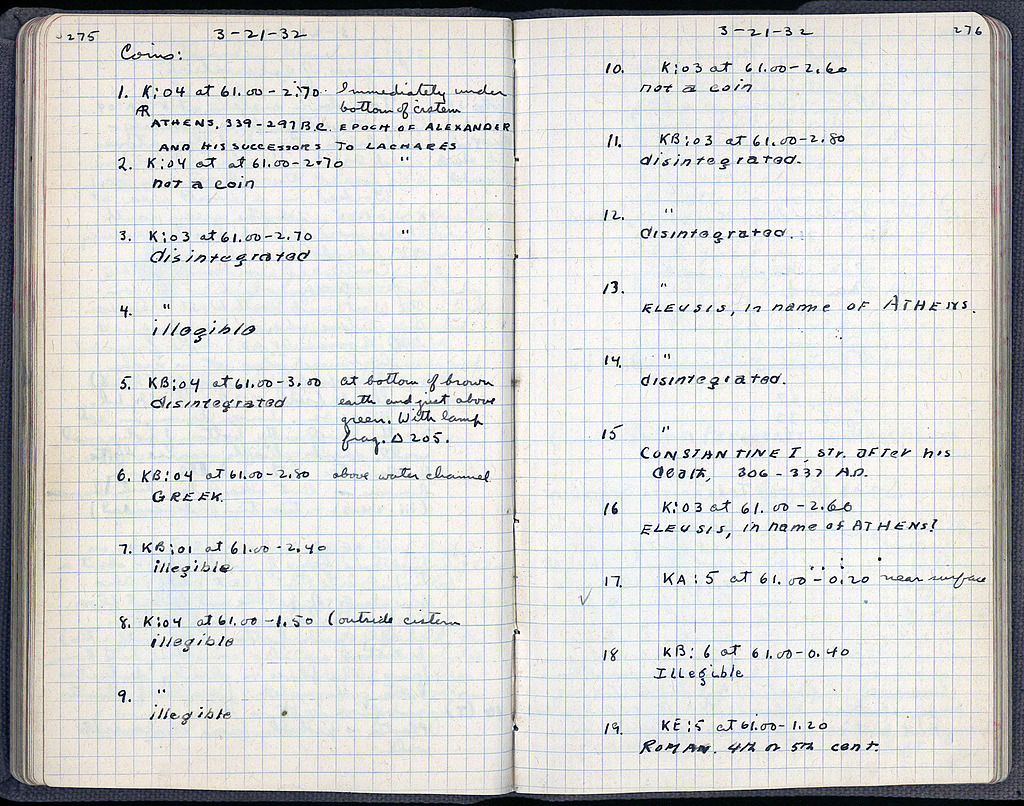 275 3-21-32
Coins:
1. K:04 at 61.00-2.70 Immediately under
AR bottom of cistern
ATHENS, 339-297 B.C. EPOCH OF ALEXANDER
AND HIS SUCCESSORS TO LACHARES
2. K:04 at at 61.00-2.70 "
not a coin
3. K:03 at 61.00-2.70 "
disintegrated
4. "
illegible
5. KB:04 at 61.00-3.00 at bottom of brown
disintegrated earth and just above
green. With lamp
frag. Δ 205.
6. KB:04 at 61.00-2.80 above water channel
GREEK.
7. KB:01 at 61.00-2.40
illegible
8. K:04 at 61.00-1.50 (outside cistern
illegible
9. "
illegible
3-21-32 276
10. K:03 at 61.00-2.60
not a coin
11. KB:03 at 61.00-2.80
disintegrated.
12. "
disintegrated.
13. "
ELEUSIS, in name of ATHENS.
14. "
disintegrated.
15 "
CONSTANTINE I, str. after his
death, 306-337 A.D.
16 K:03 at 61.00-2.60
ELEUSIS, in name of ATHENS?
17. KA:5 at 61.00-0.20 near surface
✓
18 KB:6 at 61.00-0.40
Illegible
19. KE:5 at 61.00-1.20
ROMAN. 4th or 5th cent.